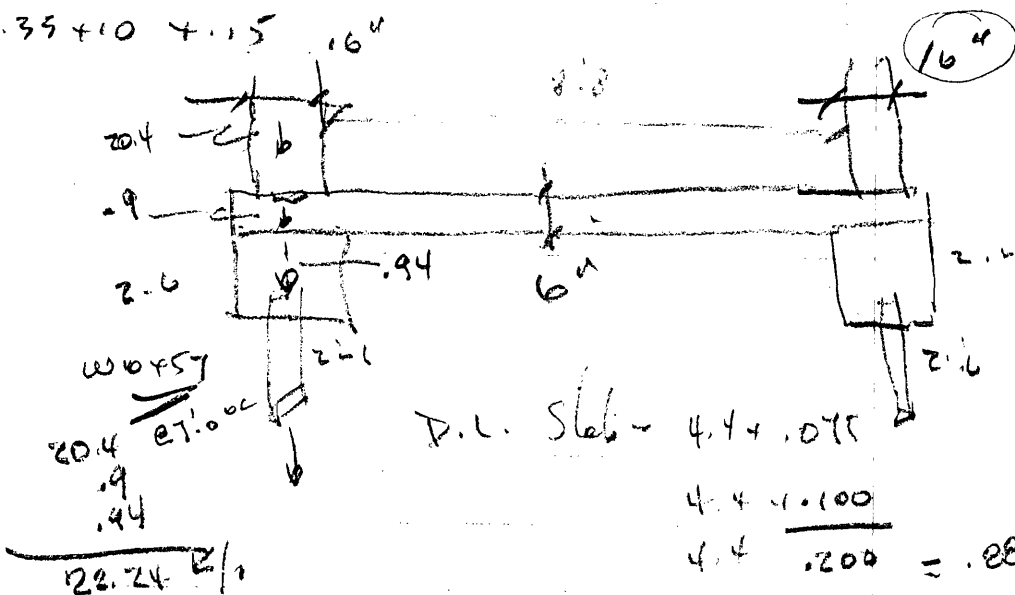 .35 + 10 + .15
16"
16"
8'.8
20.4
.9
.94
2-6
6"
2'-6
W10x57
@7'.0" oc
20.4
.9
.94
22.24 K/1
D.L. Slab - 4.4 x .075
4.4 x .100
4.4 .200 = .88